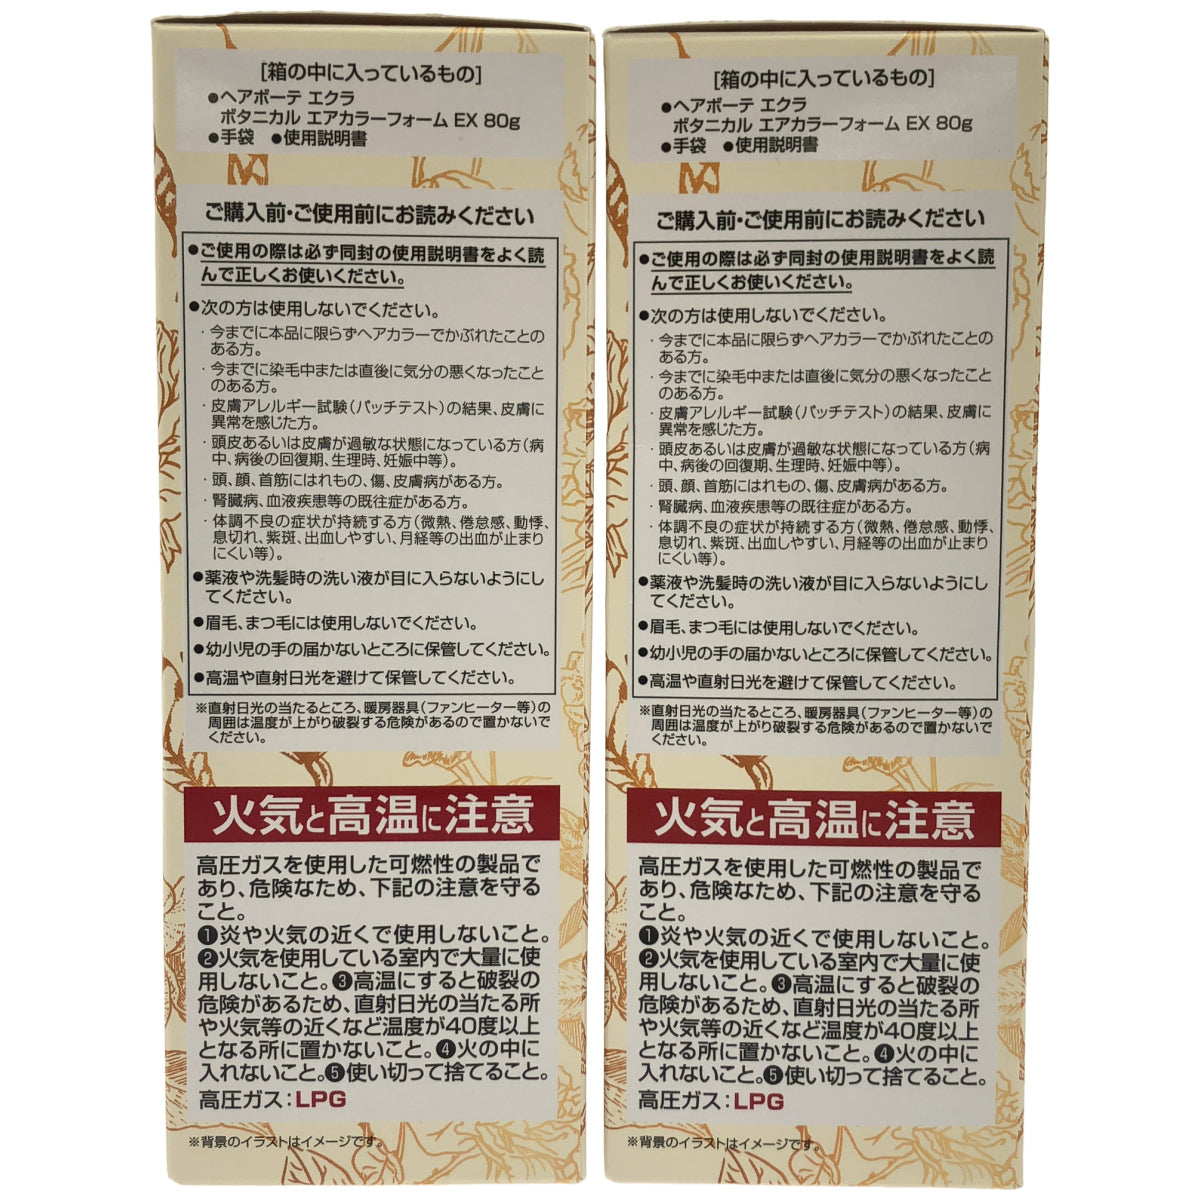 [箱の中に入っているもの]
●ヘアボーテ エクラ
ボタニカル エアカラーフォーム EX 80g
●手袋 ●使用説明書
ご購入前・ご使用前にお読みください
●ご使用の際は必ず同封の使用説明書をよく読
んで正しくお使いください。
●次の方は使用しないでください。
・今までに本品に限らずヘアカラーでかぶれたことの
ある方。
・今までに染毛中または直後に気分の悪くなったこと
のある方。
・皮膚アレルギー試験(パッチテスト)の結果、皮膚に
異常を感じた方。
・頭皮あるいは皮膚が過敏な状態になっている方(病
中、病後の回復期、生理時、妊娠中等)。
・頭、顔、首筋にはれもの、傷、皮膚病がある方。
・腎臓病、血液疾患等の既往症がある方。
・体調不良の症状が持続する方(微熱、倦怠感、動悸、
息切れ、紫斑、出血しやすい、月経等の出血が止まり
にくい等)。
●薬液や洗髪時の洗い液が目に入らないようにし
てください。
●眉毛、まつ毛には使用しないでください。
●幼小児の手の届かないところに保管してください。
●高温や直射日光を避けて保管してください。
※直射日光の当たるところ、暖房器具(ファンヒーター等)の
周囲は温度が上がり破裂する危険があるので置かないで
ください。
火気と高温に注意
高圧ガスを使用した可燃性の製品で
あり、危険なため、下記の注意を守る
こと。
❶炎や火気の近くで使用しないこと。
❷火気を使用している室内で大量に使
用しないこと。❸高温にすると破裂の
危険があるため、直射日光の当たる所
や火気等の近くなど温度が40度以上
となる所に置かないこと。❹火の中に
入れないこと。❺使い切って捨てること。
高圧ガス:LPG
※背景のイラストはイメージです。
[箱の中に入っているもの]
●ヘアボーテ エクラ
ボタニカル エアカラーフォーム EX 80g
●手袋 ●使用説明書
ご購入前・ご使用前にお読みください
●ご使用の際は必ず同封の使用説明書をよく読
んで正しくお使いください。
●次の方は使用しないでください。
・今までに本品に限らずヘアカラーでかぶれたことの
ある方。
・今までに染毛中または直後に気分の悪くなったこと
のある方。
・皮膚アレルギー試験(パッチテスト)の結果、皮膚に
異常を感じた方。
・頭皮あるいは皮膚が過敏な状態になっている方(病
中、病後の回復期、生理時、妊娠中等)。
・頭、顔、首筋にはれもの、傷、皮膚病がある方。
・腎臓病、血液疾患等の既往症がある方。
・体調不良の症状が持続する方(微熱、倦怠感、動悸、
息切れ、紫斑、出血しやすい、月経等の出血が止まり
にくい等)。
●薬液や洗髪時の洗い液が目に入らないようにし
てください。
●眉毛、まつ毛には使用しないでください。
●幼小児の手の届かないところに保管してください。
●高温や直射日光を避けて保管してください。
※直射日光の当たるところ、暖房器具(ファンヒーター等)の
周囲は温度が上がり破裂する危険があるので置かないで
ください。
火気と高温に注意
高圧ガスを使用した可燃性の製品で
あり、危険なため、下記の注意を守る
こと。
❶炎や火気の近くで使用しないこと。
❷火気を使用している室内で大量に使
用しないこと。❸高温にすると破裂の
危険があるため、直射日光の当たる所
や火気等の近くなど温度が40度以上
となる所に置かないこと。❹火の中に
入れないこと。❺使い切って捨てること。
高圧ガス:LPG
※背景のイラストはイメージです。